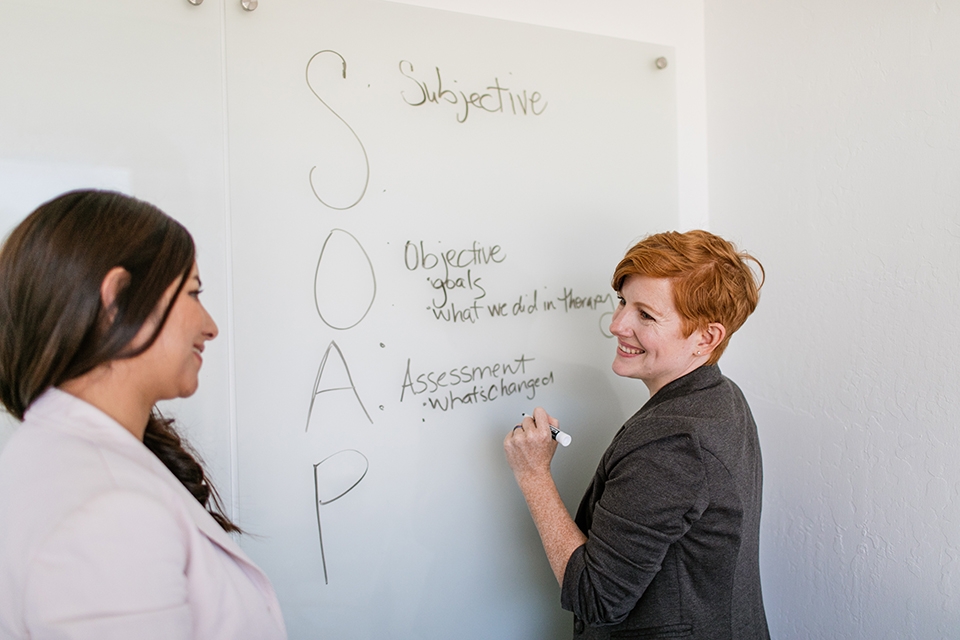 S: Subjective
O: Objective
·goals
·what we did in therapy
A: Assessment
·what's changed
P